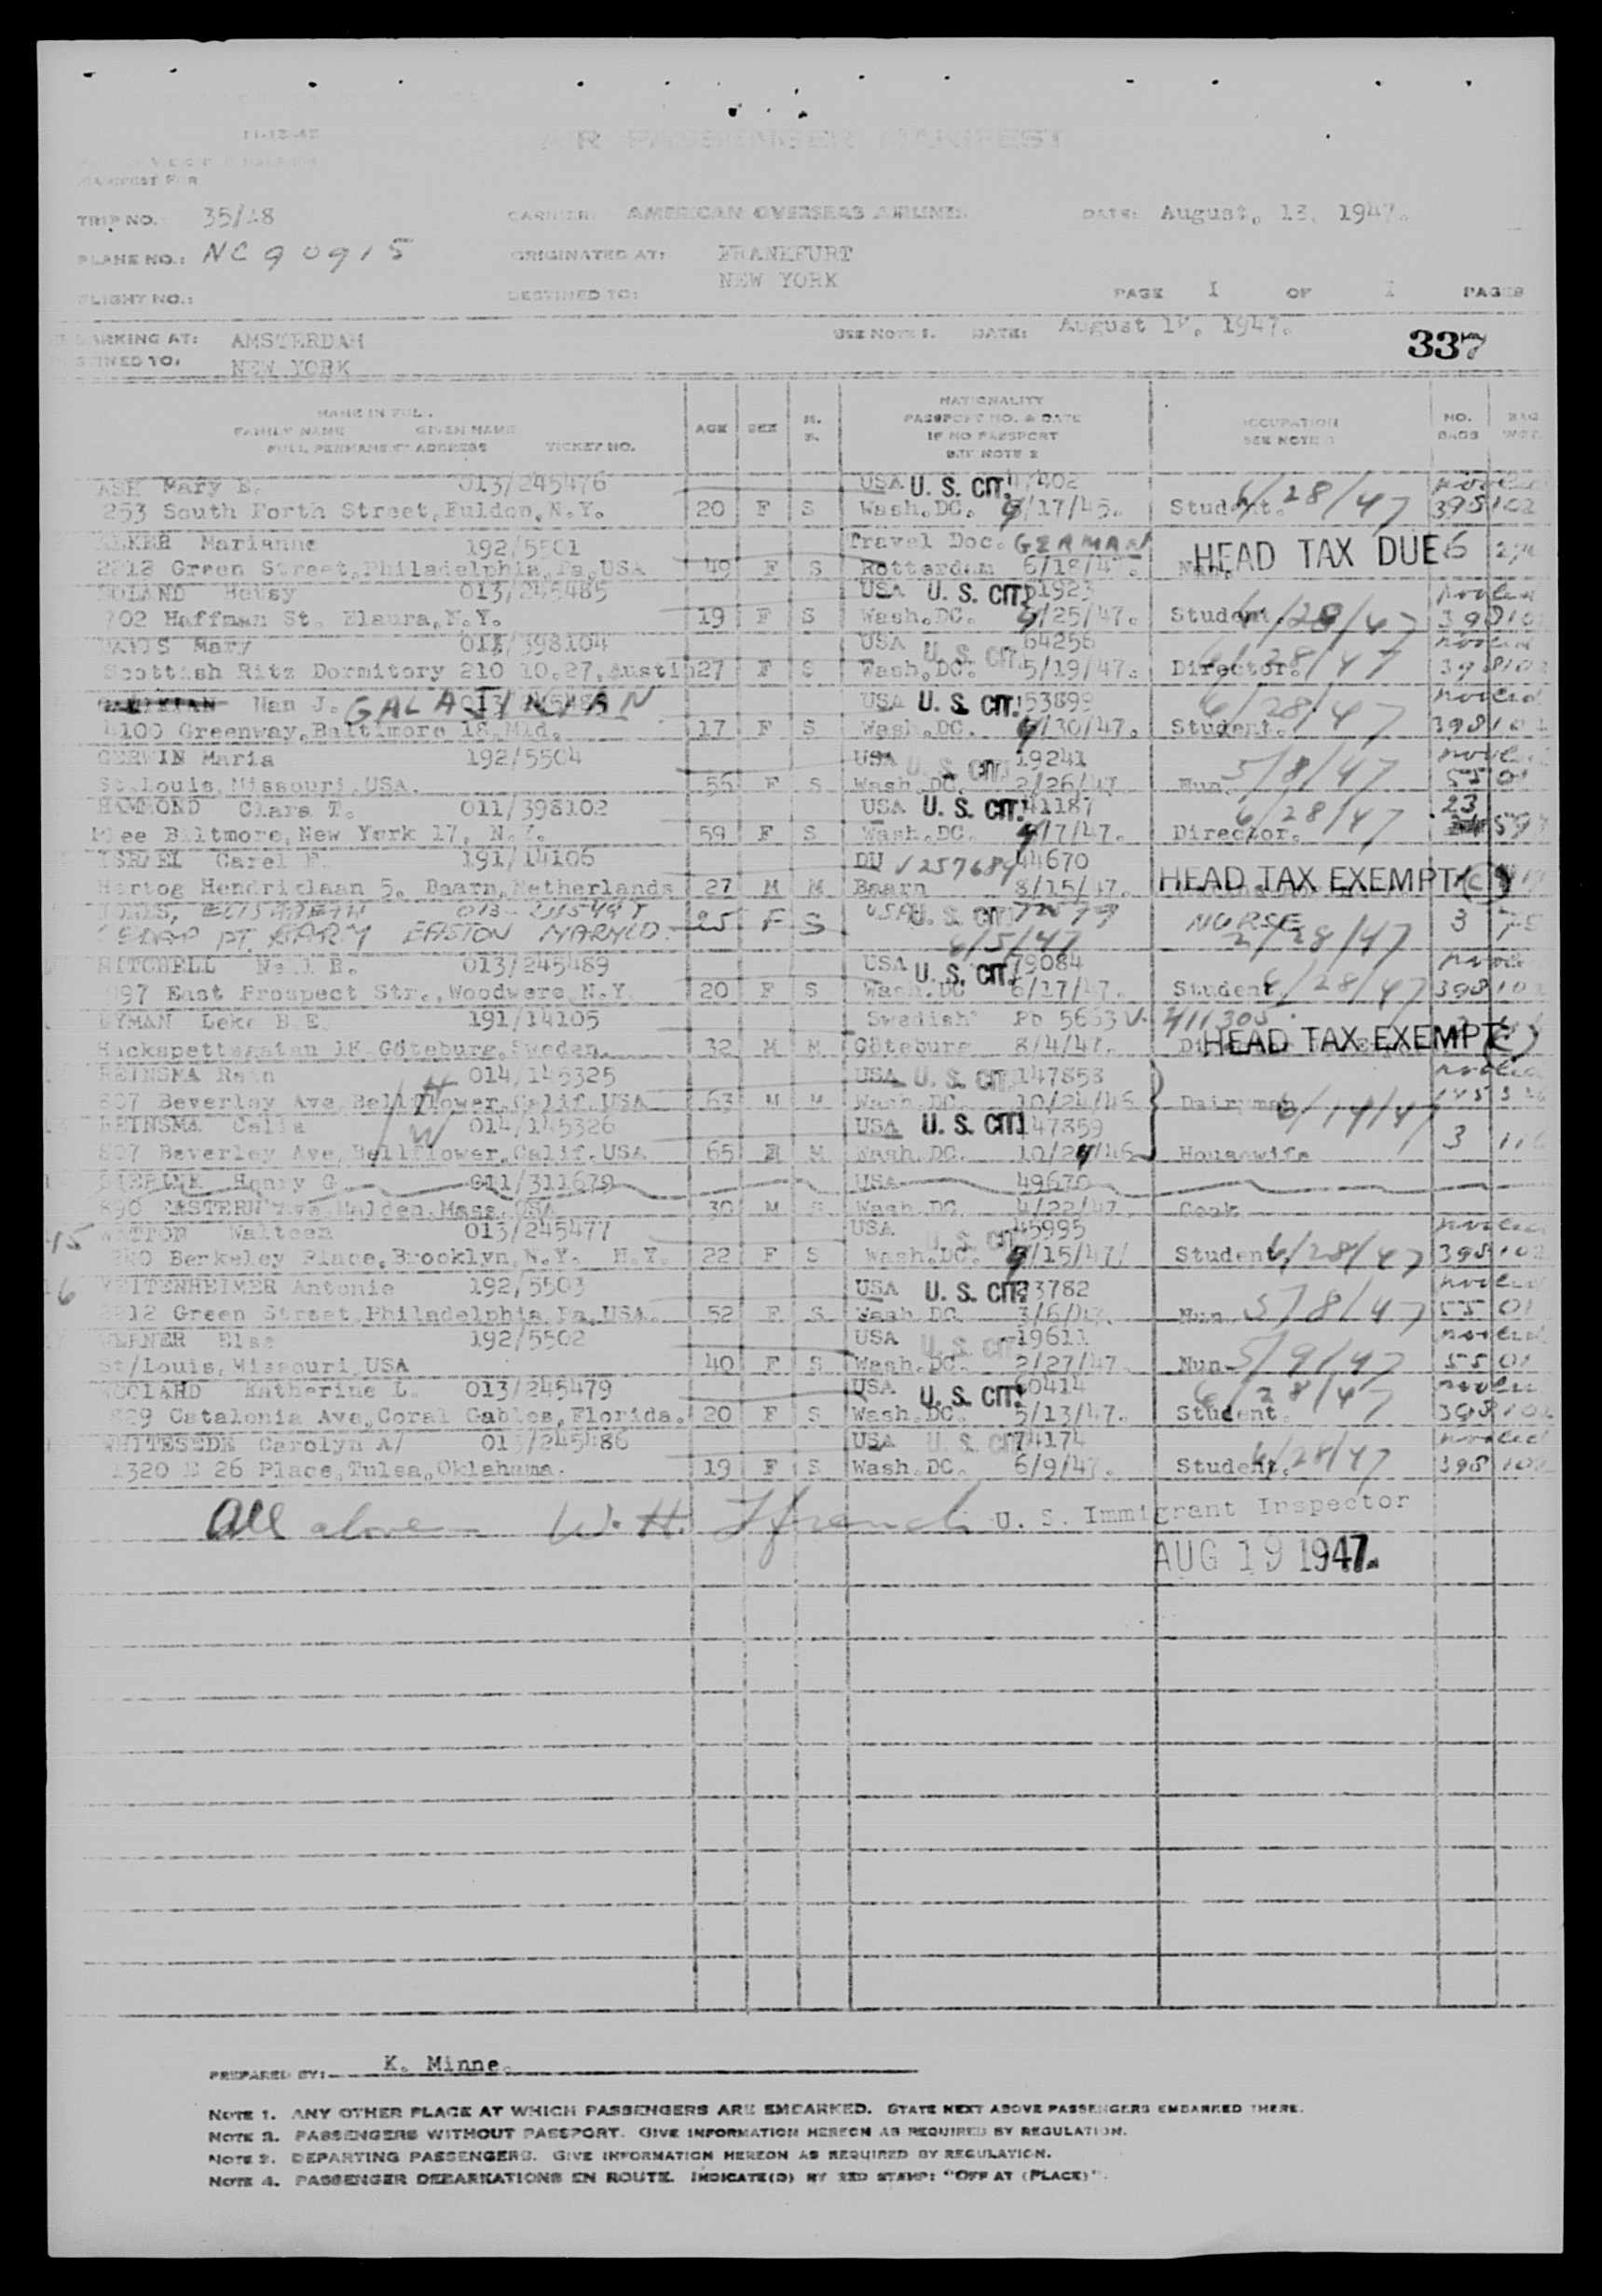 11-12-45
AIR PASSENGER MANIFEST
MANIFEST FOR
TRIP NO. 35/18 CARRIER: AMERICAN OVERSEAS AIRLINES DATE: August. 13. 1947.
PLANE NO.: NC90915 ORIGINATED AT: FRANKFURT
FLIGHT NO.: DESTINED TO: NEW YORK PAGE I OF I PAGES
EMBARKING AT: AMSTERDAM SEE NOTE 1. DATE: August 1947.
DESTINED TO. NEW YORK 337
NAME IN FULL NATIONALITY
FAMILY NAME GIVEN NAME AGE SEX M. PASSPORT NO. & DATE OCCUPATION NO. BAG
FULL PERMANENT ADDRESS TICKET NO. S. IF NO PASSPORT SEE NOTE BAGS WGT.
SEE NOTE 2
ASH Mary E. 013/245476 USA U. S. CIT. 47402
253 South Forth Street, Fulden, N.Y. 20 F S Wash.DC. /17/45. Student. 6/28/47 398102
Marianne 192/5501 Travel Doc. GERMAN HEAD TAX DUE 6
2212 Green Street, Philadelphia, Pa, USA 49 F S Rotterdam 6/18/4 . Nun.
Betsy 013/245485 USA U. S. CIT. 1923
702 Hoffman St. Elmura, N.Y. 19 F S Wash.DC. /25/47. Student. 6/28/47
Mary 011/398104 USA U. S. CIT. 64256
Scottish Ritz Dormitory 210 10.27, Austin 27 F S Wash.DC. 5/19/47. Director. 6/28/47 398102
Nan J. GALAJIKIAN USA U. S. CIT. 153899 6/28/47
4100 Greenway, Baltimore 18, Mld. 17 F S Wash.DC. /30/47. Student. 398102
GERWIN Maria 192/5504 USA U. S. CIT. 19241
St.Louis, Missouri, USA. 56 F S Wash.DC. 2/26/47 Nun. 5/8/47 5501
HAMMOND Clara T. 011/398102 USA U. S. CIT. 41187 23
Biltmore, New York 17, N.Y. 59 F S Wash.DC. /7/47. Director. 6/28/47
ISRAEL Carel 191/14106 DU V257684 44670
Hertog Hendriclaan 5. Baarn, Netherlands 27 M M Baarn 8/15/47. HEAD TAX EXEMPT
JONES, ELIZABETH USA U. S. CIT. NURSE
EASTON 25 F S 6/5/47 2/28/47 3 75
MITCHELL Nell R. 013/245489 USA U. S. CIT. 79084
997 East Prospect Str., Woodwere, N.Y. 20 F S Wash.DC 6/17/47. Student. 6/28/47 398102
Leke B.E. 191/14105 Swedish Pb 5663 V. 411305
Hackspettsgatan 18 Göteburg, Sweden. 32 M M Göteburg 8/4/47. HEAD TAX EXEMPT
REINSMA Rein H 014/145325 USA U. S. CIT. 147858
807 Beverley Ave, Bellflower, Calif. USA 63 M M Wash.DC. 10/24/46 Dairyman 8/14/47
REINSMA Celia W 014/145326 USA U. S. CIT. 147859
807 Beverley Ave, Bellflower, Calif. USA 65 F M Wash.DC. 10/24/46 Housewife 3 116
Henry G. 011/311679 USA 49670
890 EASTERN Ave, Malden, Mass. USA 30 M S Wash.DC. 4/22/47 Cook
15 Walteen 013/245477 USA U. S. CIT. 45995
Berkeley Place, Brooklyn, N.Y. N.Y. 22 F S Wash.DC. /15/47/ Student. 6/28/47 398102
16 WEITENHEIMER Antonie 192/5503 USA U. S. CIT. 33782
2212 Green Street Philadelphia, Pa, USA. 52 F S Wash.DC. 3/6/47. Nun 5/8/47 5501
WERNER Else 192/5502 USA U. S. CIT. 19611
St/Louis, Missouri, USA 40 F S Wash.DC. 2/27/47 Nun 5/9/47 5501
WOOLARD Katherine L. 013/245479 USA U. S. CIT. 60414 6/28/47
829 Catalonia Ave, Coral Gables, Florida. 20 F S Wash.DC. 5/13/47. Student. 398102
WHITESEDE Carolyn A/ 013/245486 USA U. S. CIT. 74174
1320 E 26 Place, Tulsa, Oklahama. 19 F S Wash.DC. 6/9/47. Student. 6/28/47 398102
All above W. H. Ffrench U. S. Immigrant Inspector
AUG 19 1947.
PREPARED BY: K. Minne.
NOTE 1. ANY OTHER PLACE AT WHICH PASSENGERS ARE EMBARKED. STATE NEXT ABOVE PASSENGERS EMBARKED THERE.
NOTE 2. PASSENGERS WITHOUT PASSPORT. GIVE INFORMATION HEREON AS REQUIRED BY REGULATION.
NOTE 3. DEPARTING PASSENGERS. GIVE INFORMATION HEREON AS REQUIRED BY REGULATION.
NOTE 4. PASSENGER DEBARKATIONS EN ROUTE. INDICATE(D) BY RED STAMP: "OFF AT (PLACE)".